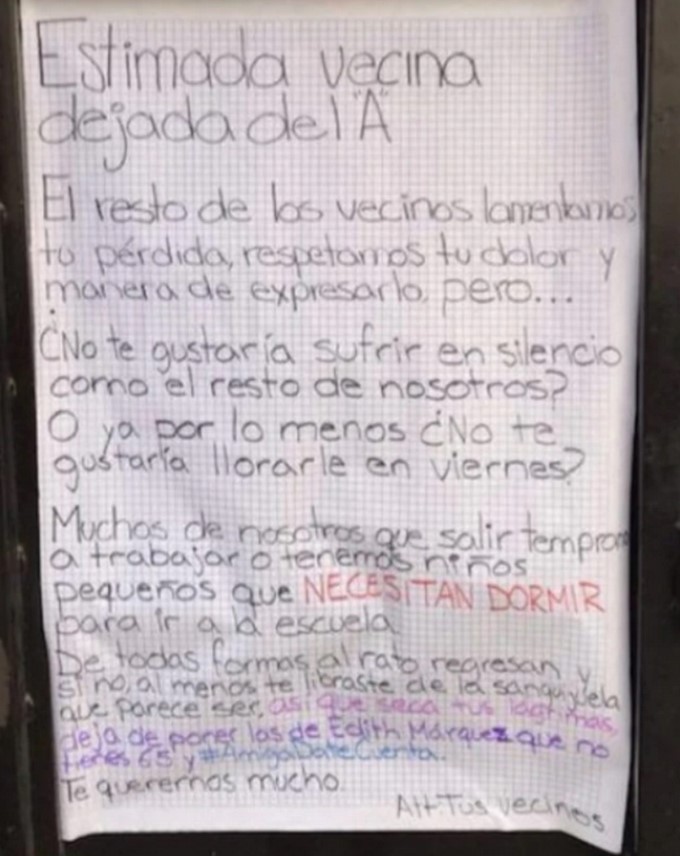 Estimada vecina
dejada del "A"
El resto de los vecinos lamentamos
tu pérdida, respetamos tu dolor y
manera de expresarlo, pero...
¿No te gustaría sufrir en silencio
como el resto de nosotros?
O ya por lo menos ¿No te
gustaría llorarle en viernes?
Muchos de nosotros que salir temprano
a trabajar o tenemos niños
pequeños que NECESITAN DORMIR
para ir a la escuela
De todas formas al rato regresan y
si no, al menos te libraste de la sanguijuela
que parece ser, así que seca tus lágrimas,
deja de poner las de Edith Márquez que no
tienes 65 y #AmigaDateCuenta.
Te queremos mucho.
Att. Tus vecinos